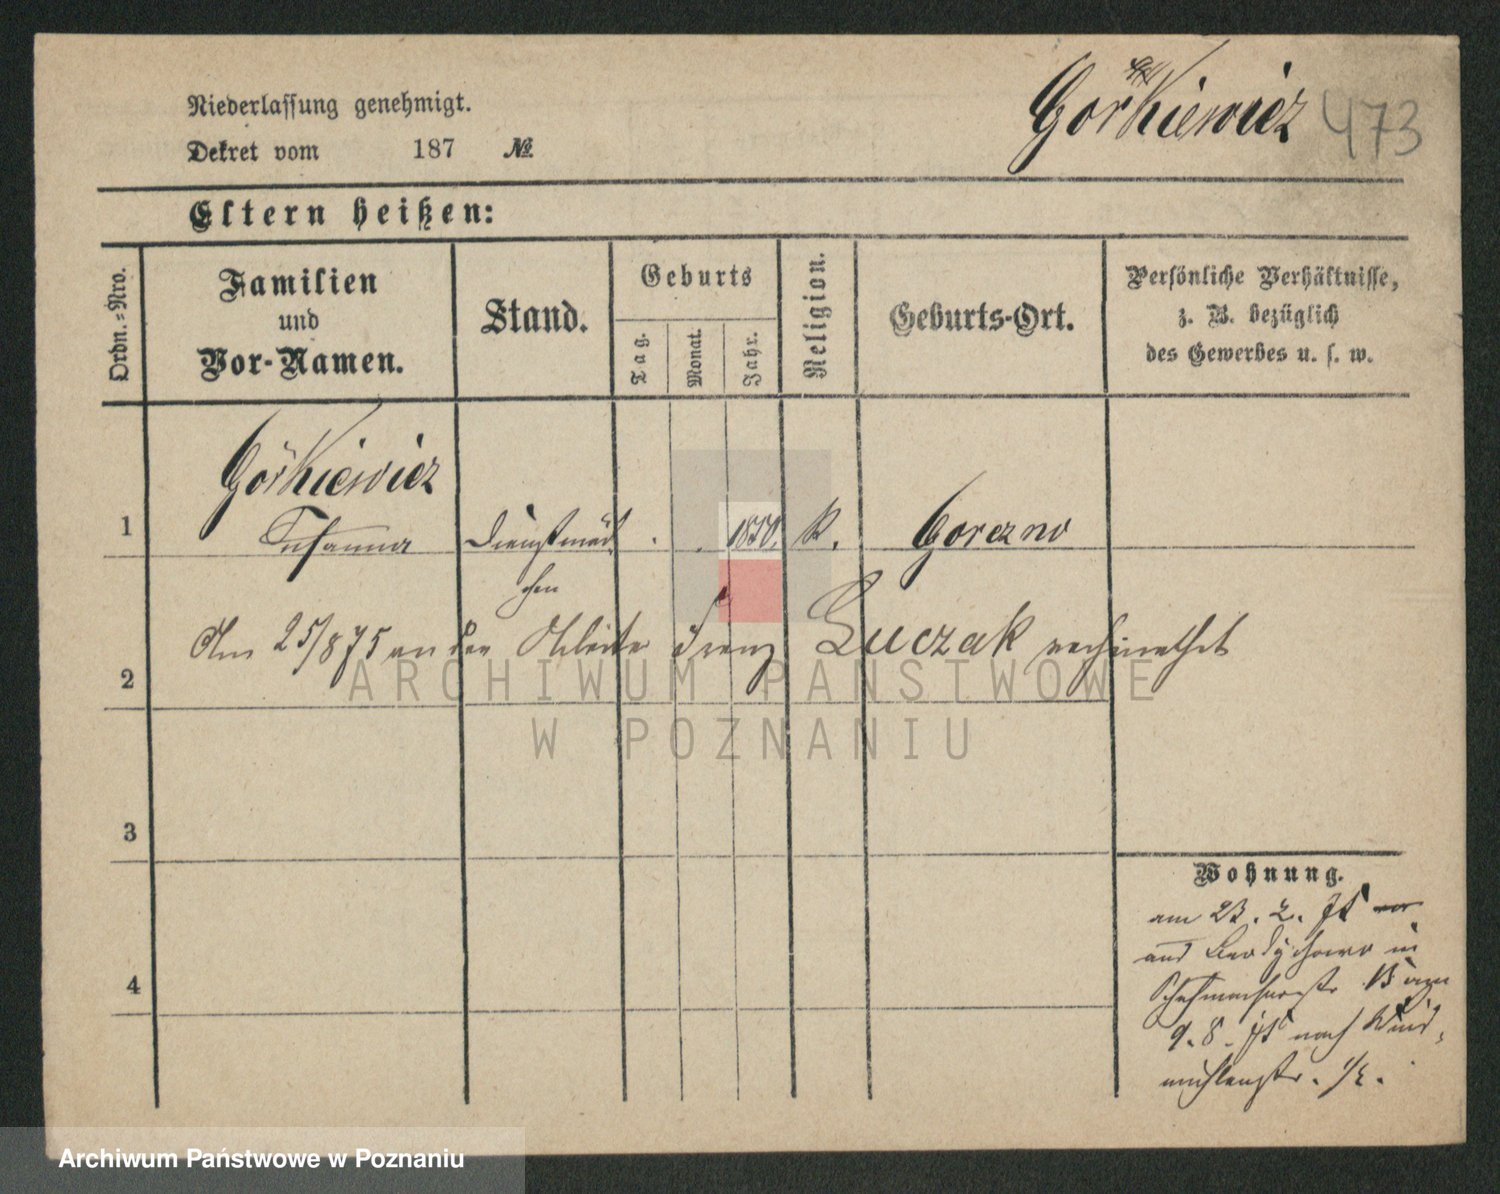 Niederlassung genehmigt.
Görkiewicz 473
Dekret vom 187 №
Eltern heißen:
Ordn.=Nro.
Familien
und
Vor-Namen.
Stand.
Geburts
Tag.
Monat.
Jahr.
Religion.
Geburts-Ort.
Persönliche Verhältnisse,
z. B. bezüglich
des Gewerbes u. s. w.
Görkiewicz
1 Susanna Dienstmäd
chen
1850. K. Gorczno
2 Am 25/8 75 an den Arbeiter Franz Luczak verheirathet
ARCHIWUM PAŃSTWOWE
W POZNANIU
3
4
Wohnung.
am 23. 2. 75
aus Berdychowo in
Schuhmacherstr. 13
9. 8. 75 nach Wind
mühlenstr.
Archiwum Państwowe w Poznaniu